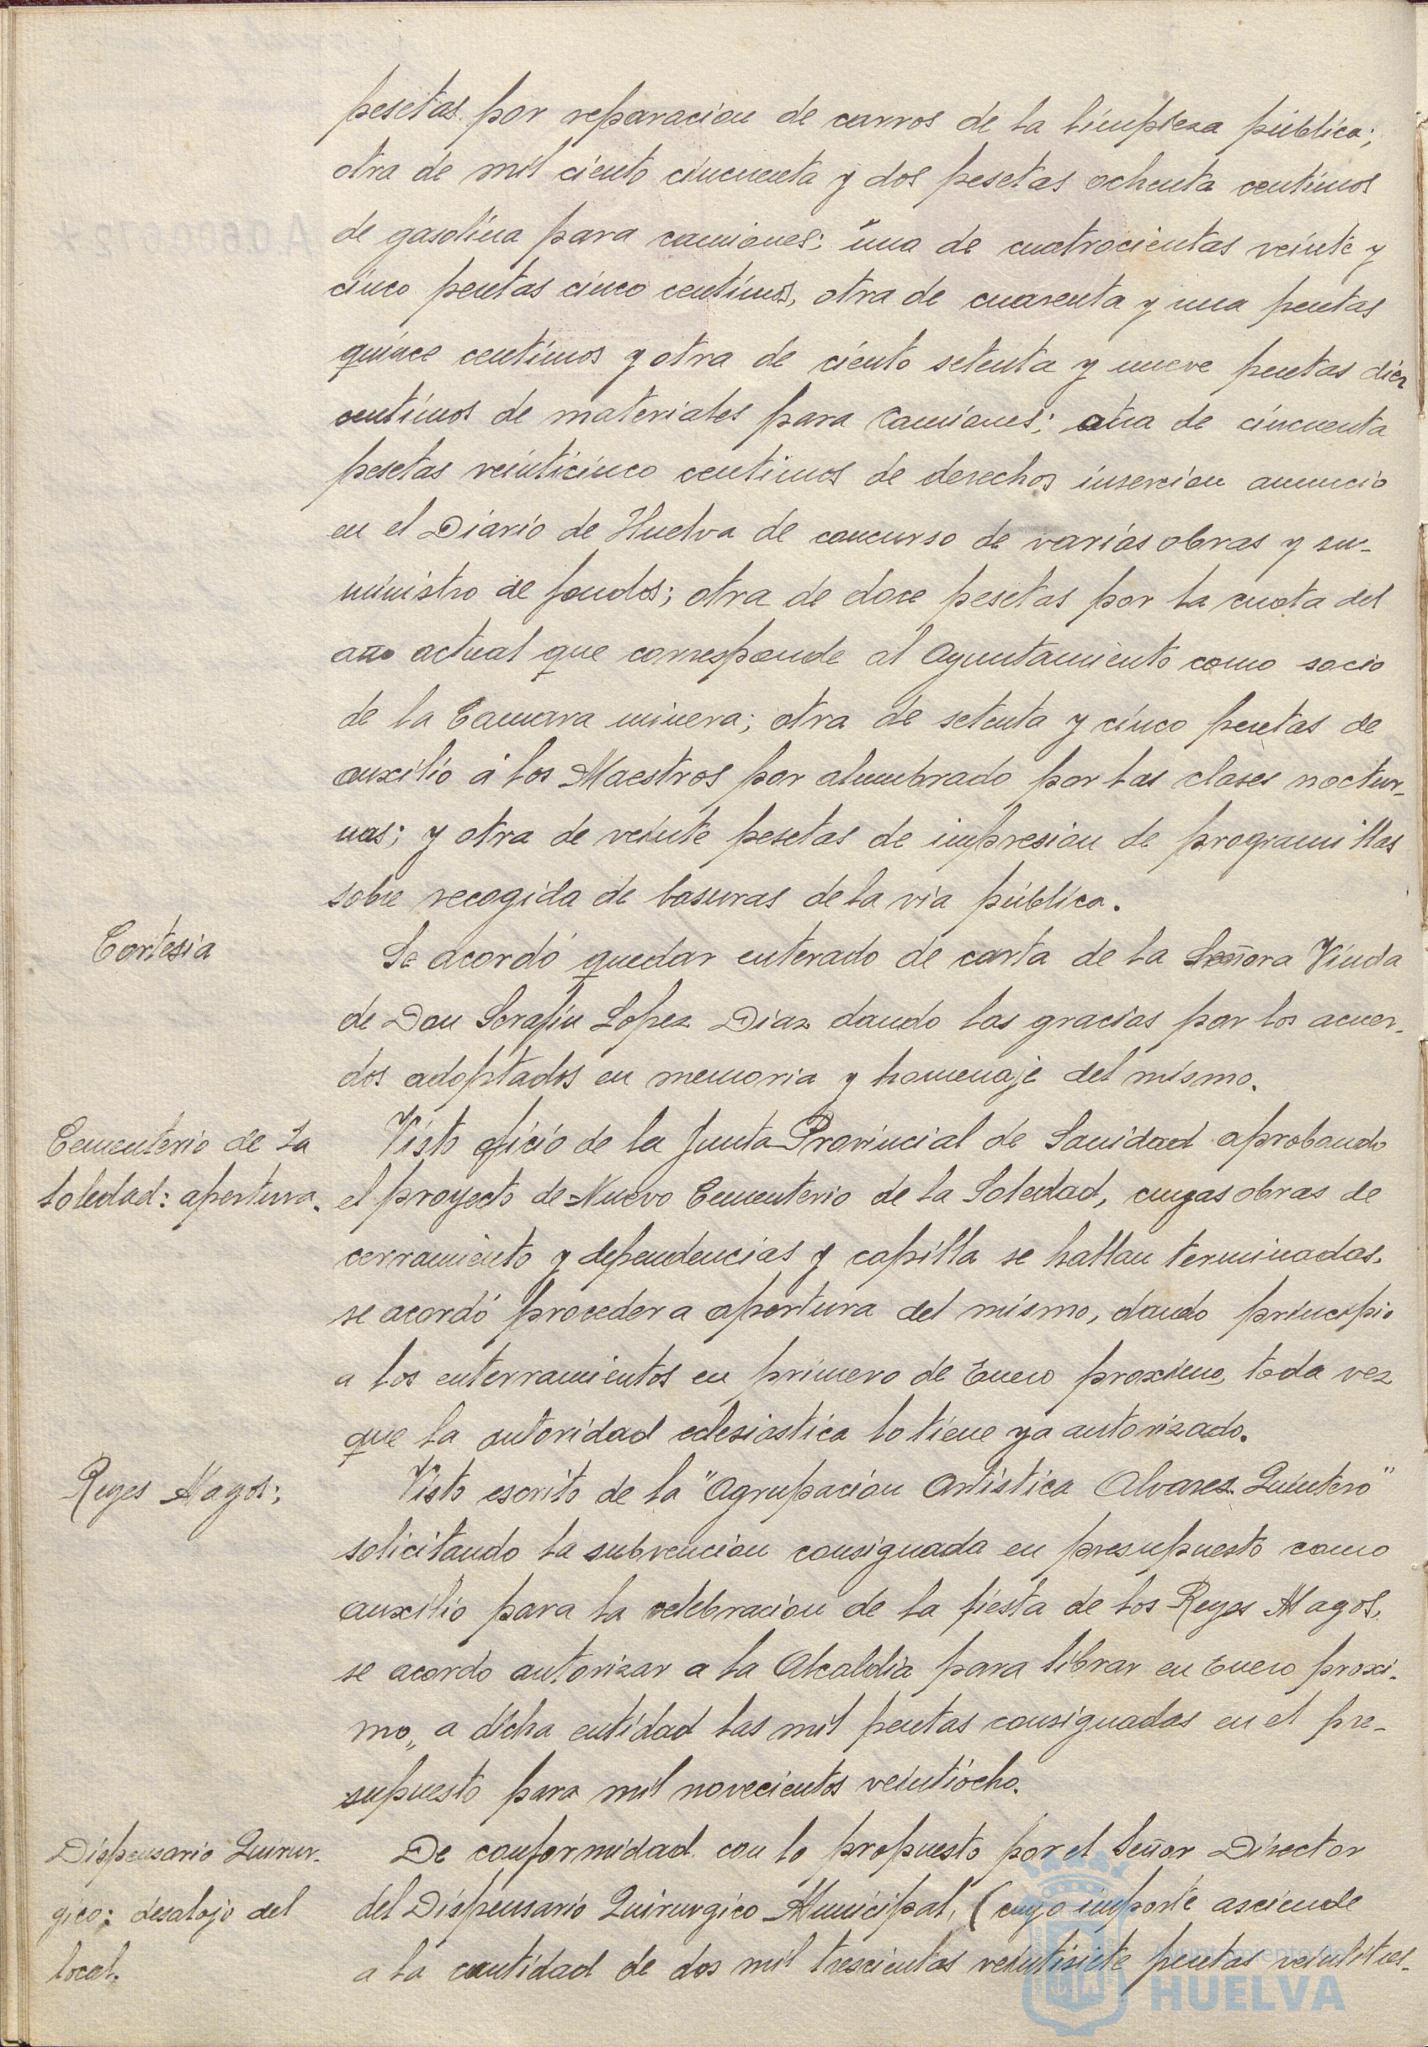 pesetas por reparacion de carros de la limpieza pública;
otra de mil ciento cincuenta y dos pesetas ochenta centimos
de gasolina para camiones; una de cuatrocientas veinte y
cinco pesetas cinco centimos, otra de cuarenta y una pesetas
quince centimos y otra de ciento setenta y nueve pesetas diez
centimos de materiales para camiones; otra de cincuenta
pesetas veinticinco centimos de derechos insercion anuncio
en el Diario de Huelva de concurso de varias obras y su-
ministro de fondos; otra de doce pesetas por la cuota del
año actual que corresponde al Ayuntamiento como socio
de la Camara minera; otra de setenta y cinco pesetas de
auxilio á los Maestros por alumbrado por las clases noctur-
nas; y otra de veinte pesetas de impresion de programillas
sobre recogida de basuras de la via pública.
Cortesia
Se acordó quedar enterado de carta de la Señora Viuda
de Don Serafin Lopez Diaz dando las gracias por los acuer-
dos adoptados en memoria y homenaje del mismo.
Cementerio de La
Soledad: apertura.
Visto oficio de la Junta Provincial de Sanidad aprobando
el proyecto de Nuevo Cementerio de la Soledad, cuyas obras de
cerramiento y dependencias y capilla se hallan terminadas,
se acordó proceder a apertura del mismo, dando principio
a los enterramientos en primero de Enero proximo, toda vez
que la autoridad eclesiastica lo tiene ya autorizado.
Reyes Magos:
Visto escrito de la "Agrupacion Artistica Alvarez Quintero"
solicitando la subvencion consignada en presupuesto como
auxilio para la celebracion de la fiesta de los Reyes Magos,
se acordo autorizar a la Alcaldia para librar en Enero proxi-
mo, a dicha entidad las mil pesetas consignadas en el pre-
supuesto para mil novecientos veintiocho.
Dispensario Quirur-
gico: desalojo del
local.
De conformidad con lo propuesto por el Señor Director
del Dispensario Quirurgico Municipal, (cuyo importe asciende
a la cantidad de dos mil trescientas veintisiete pesetas veintitres-
Ayuntamiento de
HUELVA